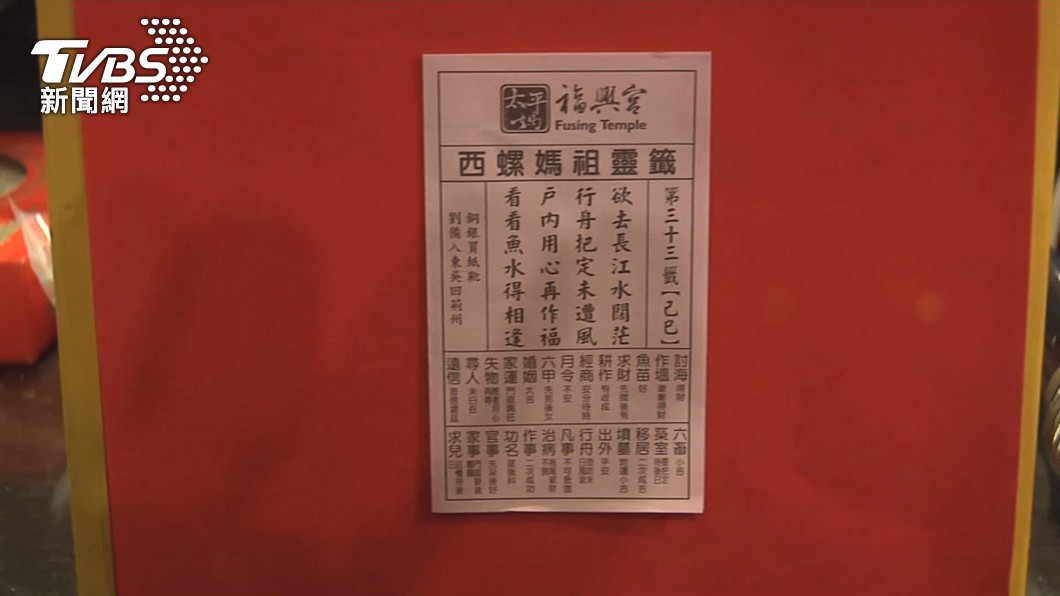 TVBS
新聞網
太平
媽
福興宮
Fusing Temple
西螺媽祖靈籤
第三十三籤【己巳】
欲去長江水闊茫
行舟把定未遭風
戶內用心再作福
看看魚水得相逢
銅銀買紙靴
劉備入東吳回荊州
討海 得財
作塭
魚苗 好
求財 先微後有
耕作 有收成
經商
月令 不安
六甲 先男後女
婚姻 大吉
家運
失物
尋人 未日在
遠信
六畜 小吉
築室
移居 二次成吉
墳墓
出外 平安
行舟
凡事
治病
作事 二次成功
功名
官事
家事
求兒